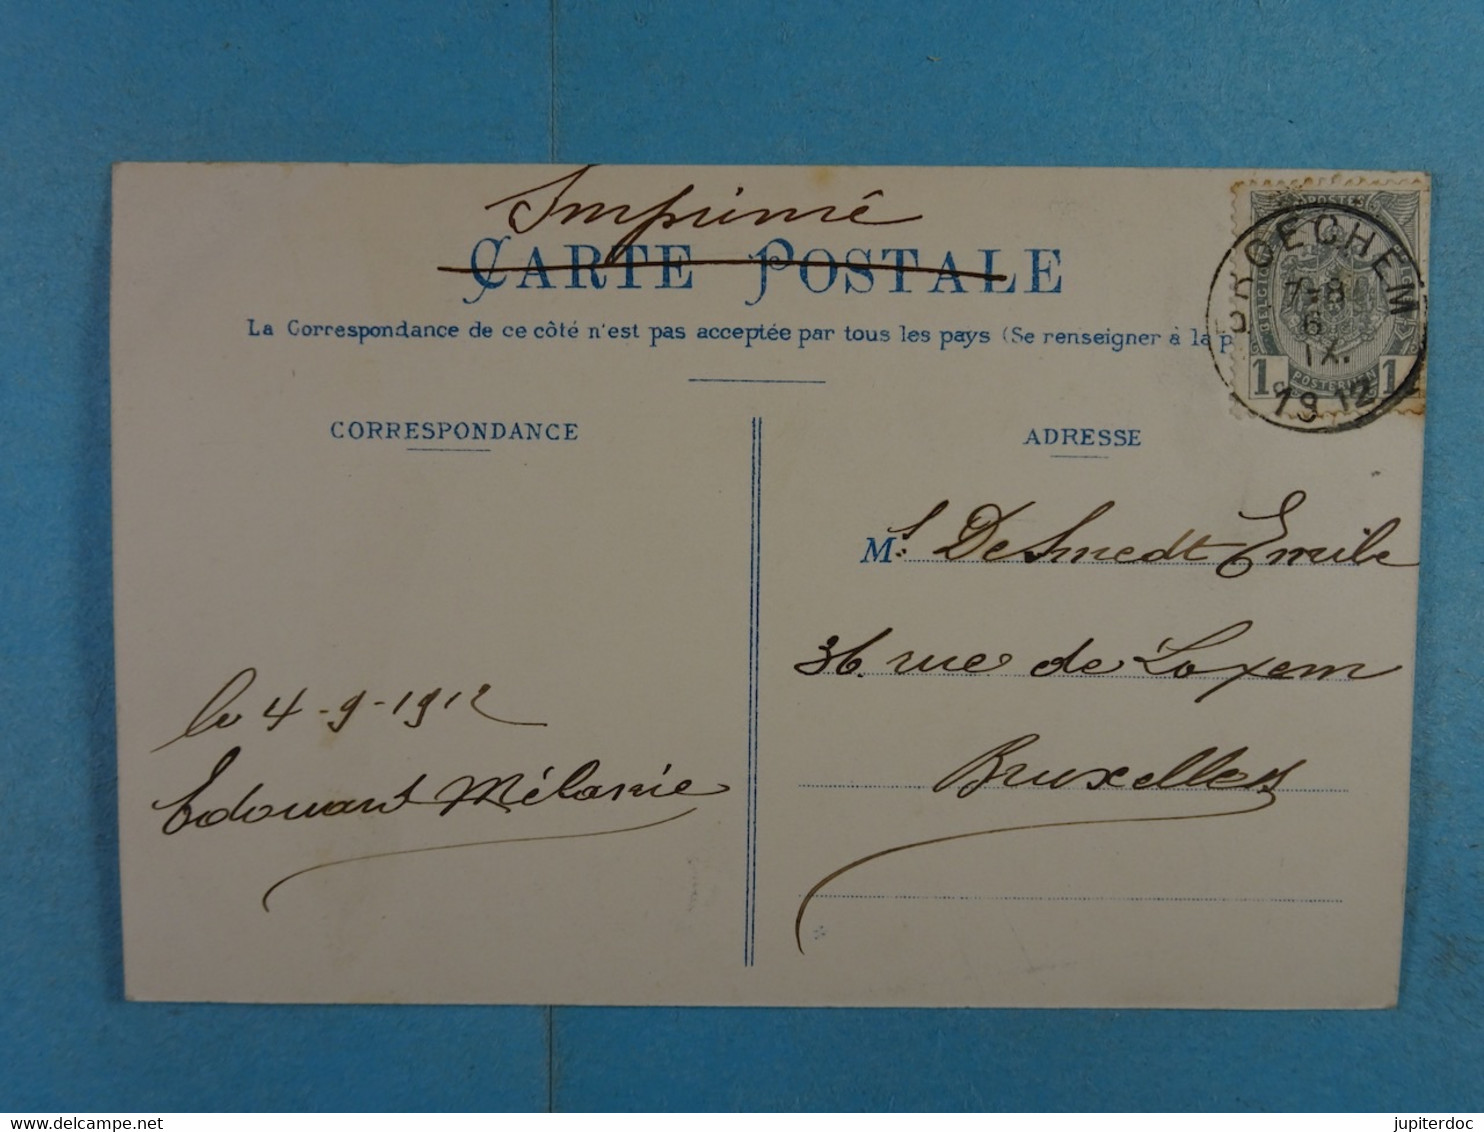 Imprimé
CARTE POSTALE
La Correspondance de ce côté n'est pas acceptée par tous les pays (Se renseigner à la p
CORRESPONDANCE
ADRESSE
POSTES
BROECHEM
7-8
6
IX.
1912
1 POSTERIJEN 1
Mr. DeSmedt Emile
36. rue de Loxem
Bruxelles
le 4-9-1912
Edouard Mélanie
www.delcampe.net
jupiterdoc